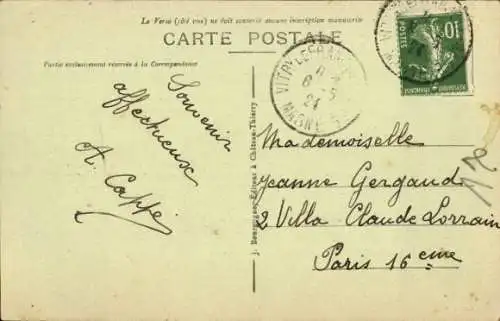 Le Verso (côté vue) ne doit contenir aucune inscription manuscrite
CARTE POSTALE
Partie exclusivement réservée à la Correspondance
Souvenir
affectueux
A. Cappé
J. Bourgogne, Éditeur à Château-Thierry
VITRY-LE-FRANÇOIS
6 - 5
24
MARNE
10
POSTES
Mademoiselle
Jeanne Gergaud
2 Villa Claude Lorrain
Paris 16eme